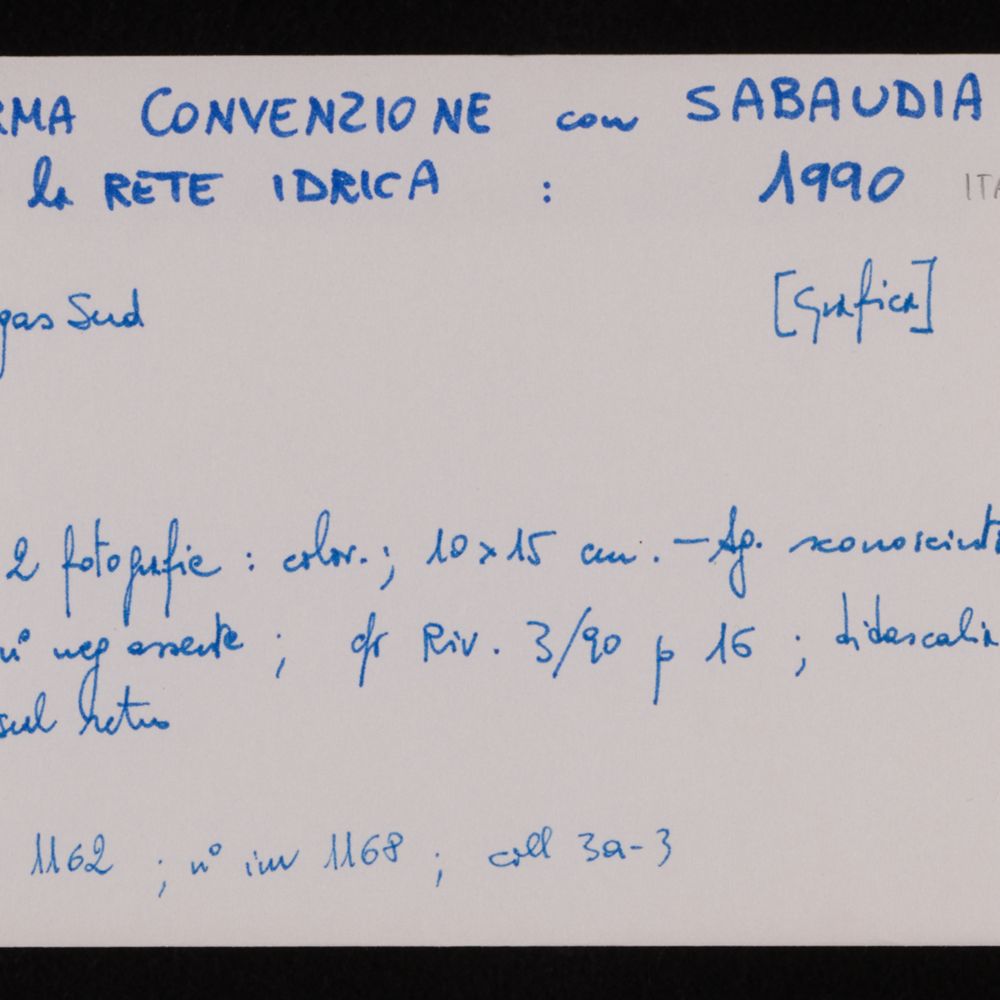 RMA CONVENZIONE con SABAUDIA
la RETE IDRICA : 1990 ITA
gas Sud [Grafica]
2 fotografie : color. ; 10x15 cm. - Ag. sconosciuta
n° neg assente ; cfr Riv. 3/90 p 16 ; didascalia
sul retro
1162 ; n° inv 1168 ; coll 3a-3